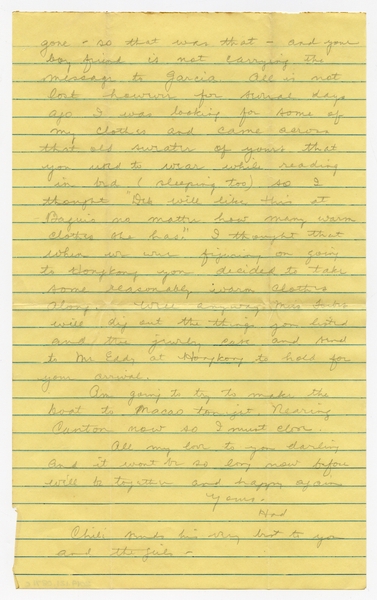 gone - so that was that - and your
boy friend is not carrying the
message to Garcia. All is not
lost however for several days
ago I was looking for some of
my clothes and came across
that old sweater of yours that
you used to wear while reading
in bed (sleeping too) so I
thought "Deb will like this at
Baguio no matter how many warm
clothes she has." I thought that
when we were figuring on going
to Hongkong you decided to take
some reasonably warm clothes
along. Well anyway Mrs.
will dig out the things you listed
and the jewelry case and send
to Mr. Eady at Hongkong to hold for
your arrival.
Am going to try to make the
boat to Macao tonight. Nearing
Canton now so I must close.
All my love to you darling
and it wont be so long now before
will be together and happy again
Yours.
Had
Chili sends his very best to you
and the girls -